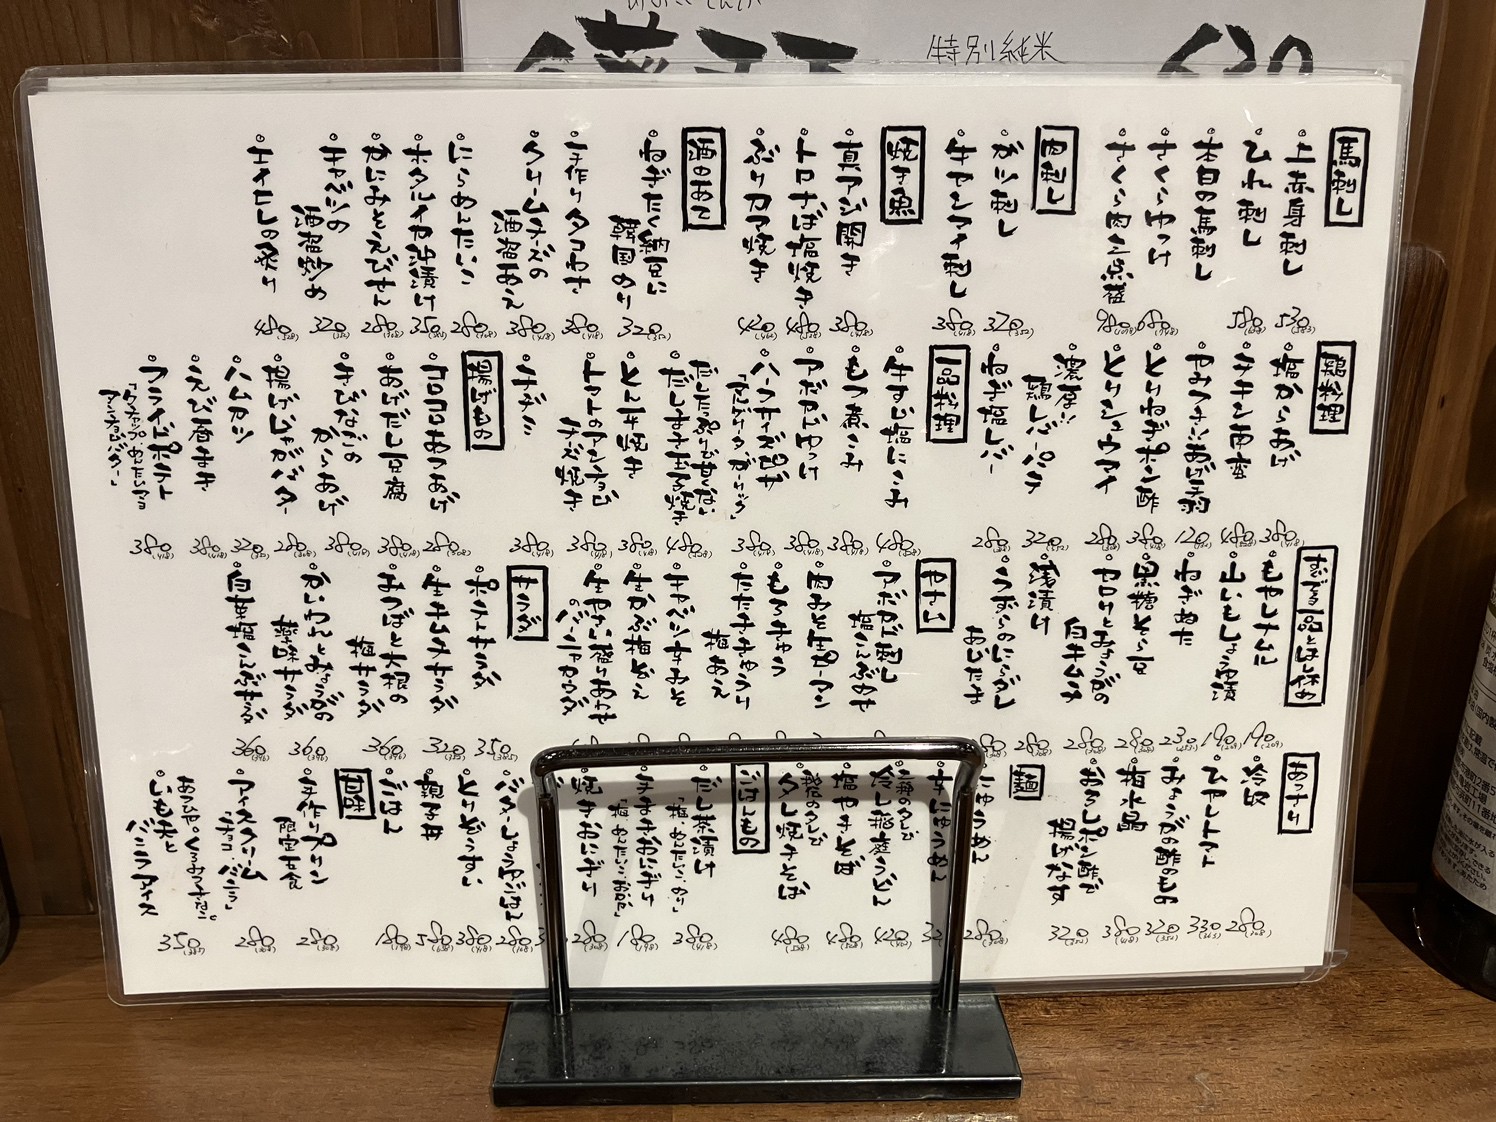 特別純米
630
馬刺し
上赤身刺し 530 (583)
ひれ刺し 580
本日の馬刺し
さくらゆっけ 680
さくら肉三点盛 980
肉刺し
ガツ刺し 320 (352)
牛センマイ刺し 380 (418)
焼き魚
真アジ開き 380 (418)
トロさば塩焼き 480
ぶりカマ焼き 420
酒のあて
ねぎたく納豆に
韓国のり 320 (352)
手作りタコわさ 380 (418)
クリームチーズの
酒盗あえ 380 (418)
にらめんたいこ 280 (308)
ホタルイカ沖漬け 350
かにみそえびせん 280 (308)
キャベツの
酒盗炒め 320 (352)
エイヒレの炙り 480 (528)
鶏料理
塩からあげ 380 (418)
チキン南蛮 480
やみつき!!あげ手羽 120
とりねぎポン酢 380
とりシュウマイ 280
濃厚!!
鶏レバーパテ 320 (352)
ねぎ塩レバー 280
一品料理
牛すじ塩にこみ 480
もつ煮こみ 380 (418)
アボカドゆっけ 380 (418)
ハーフチーズピザ
「マルゲリータ・ガーリック」 380 (418)
だしたっぷりで甘くない
だしまき玉子焼き 480
とん平焼き 380 (418)
トマトのアンチョビ
チーズ焼き 380 (418)
チヂミ 380 (418)
揚げもの
コロコロあつあげ 280 (308)
あげだし豆腐 380 (418)
きびなごの
からあげ 380 (418)
揚げじゃがバター 280 (308)
ハムカツ 320 (352)
えび春まき 380 (418)
フライドポテト
「ケチャップ・めんたいマヨ
アンチョビバター」 380 (418)
すぐでる一品とはし休め
もやしナムル 190 (209)
山いもしょうゆ漬 190 (209)
ねぎぬた 230
黒糖そら豆 280
ゼロリとみょうがの
白キムチ 280
浅漬け 280
うずらのにらダレ
おひたま 280
やさい
アボカド刺し
塩こんぶのせ
肉みそ生ピーマン
もろきゅう
たたききゅうり
梅あえ
キャベツ辛みそ
生かぶ梅ぞえ
生やさい盛りあわせ
のバーニャカウダ
サラダ
ポテトサラダ 350
生ハムサラダ 320
みつばと大根の
梅サラダ 360 (396)
かいわれとみょうがの
薬味サラダ 360 (396)
白菜塩こんぶサラダ 360 (396)
あっさり
冷奴 280 (308)
ひやしトマト 330
みょうがの酢のもの 320
梅水晶 380
おろしポン酢で
揚げなす 320 (352)
麺
にゅうめん 280 (308)
牛にゅうめん
冷し稲庭うどん 420
塩やきそば 480
タレ焼きそば 480 (528)
ごはんもの
だし茶漬け
「梅・めんたいこ・のり」 380 (418)
おにぎり
「梅・めんたいこ・おかか」 180 (198)
焼きおにぎり 280
バターしょうゆごはん 280
とりぞうすい 380 (418)
親子丼 580 (638)
ごはん 180 (198)
甘味
手作りプリン
限定食 280 (308)
アイスクリーム
「チョコ・バニラ」 280 (308)
いも天と
バニラアイス 350 (385)